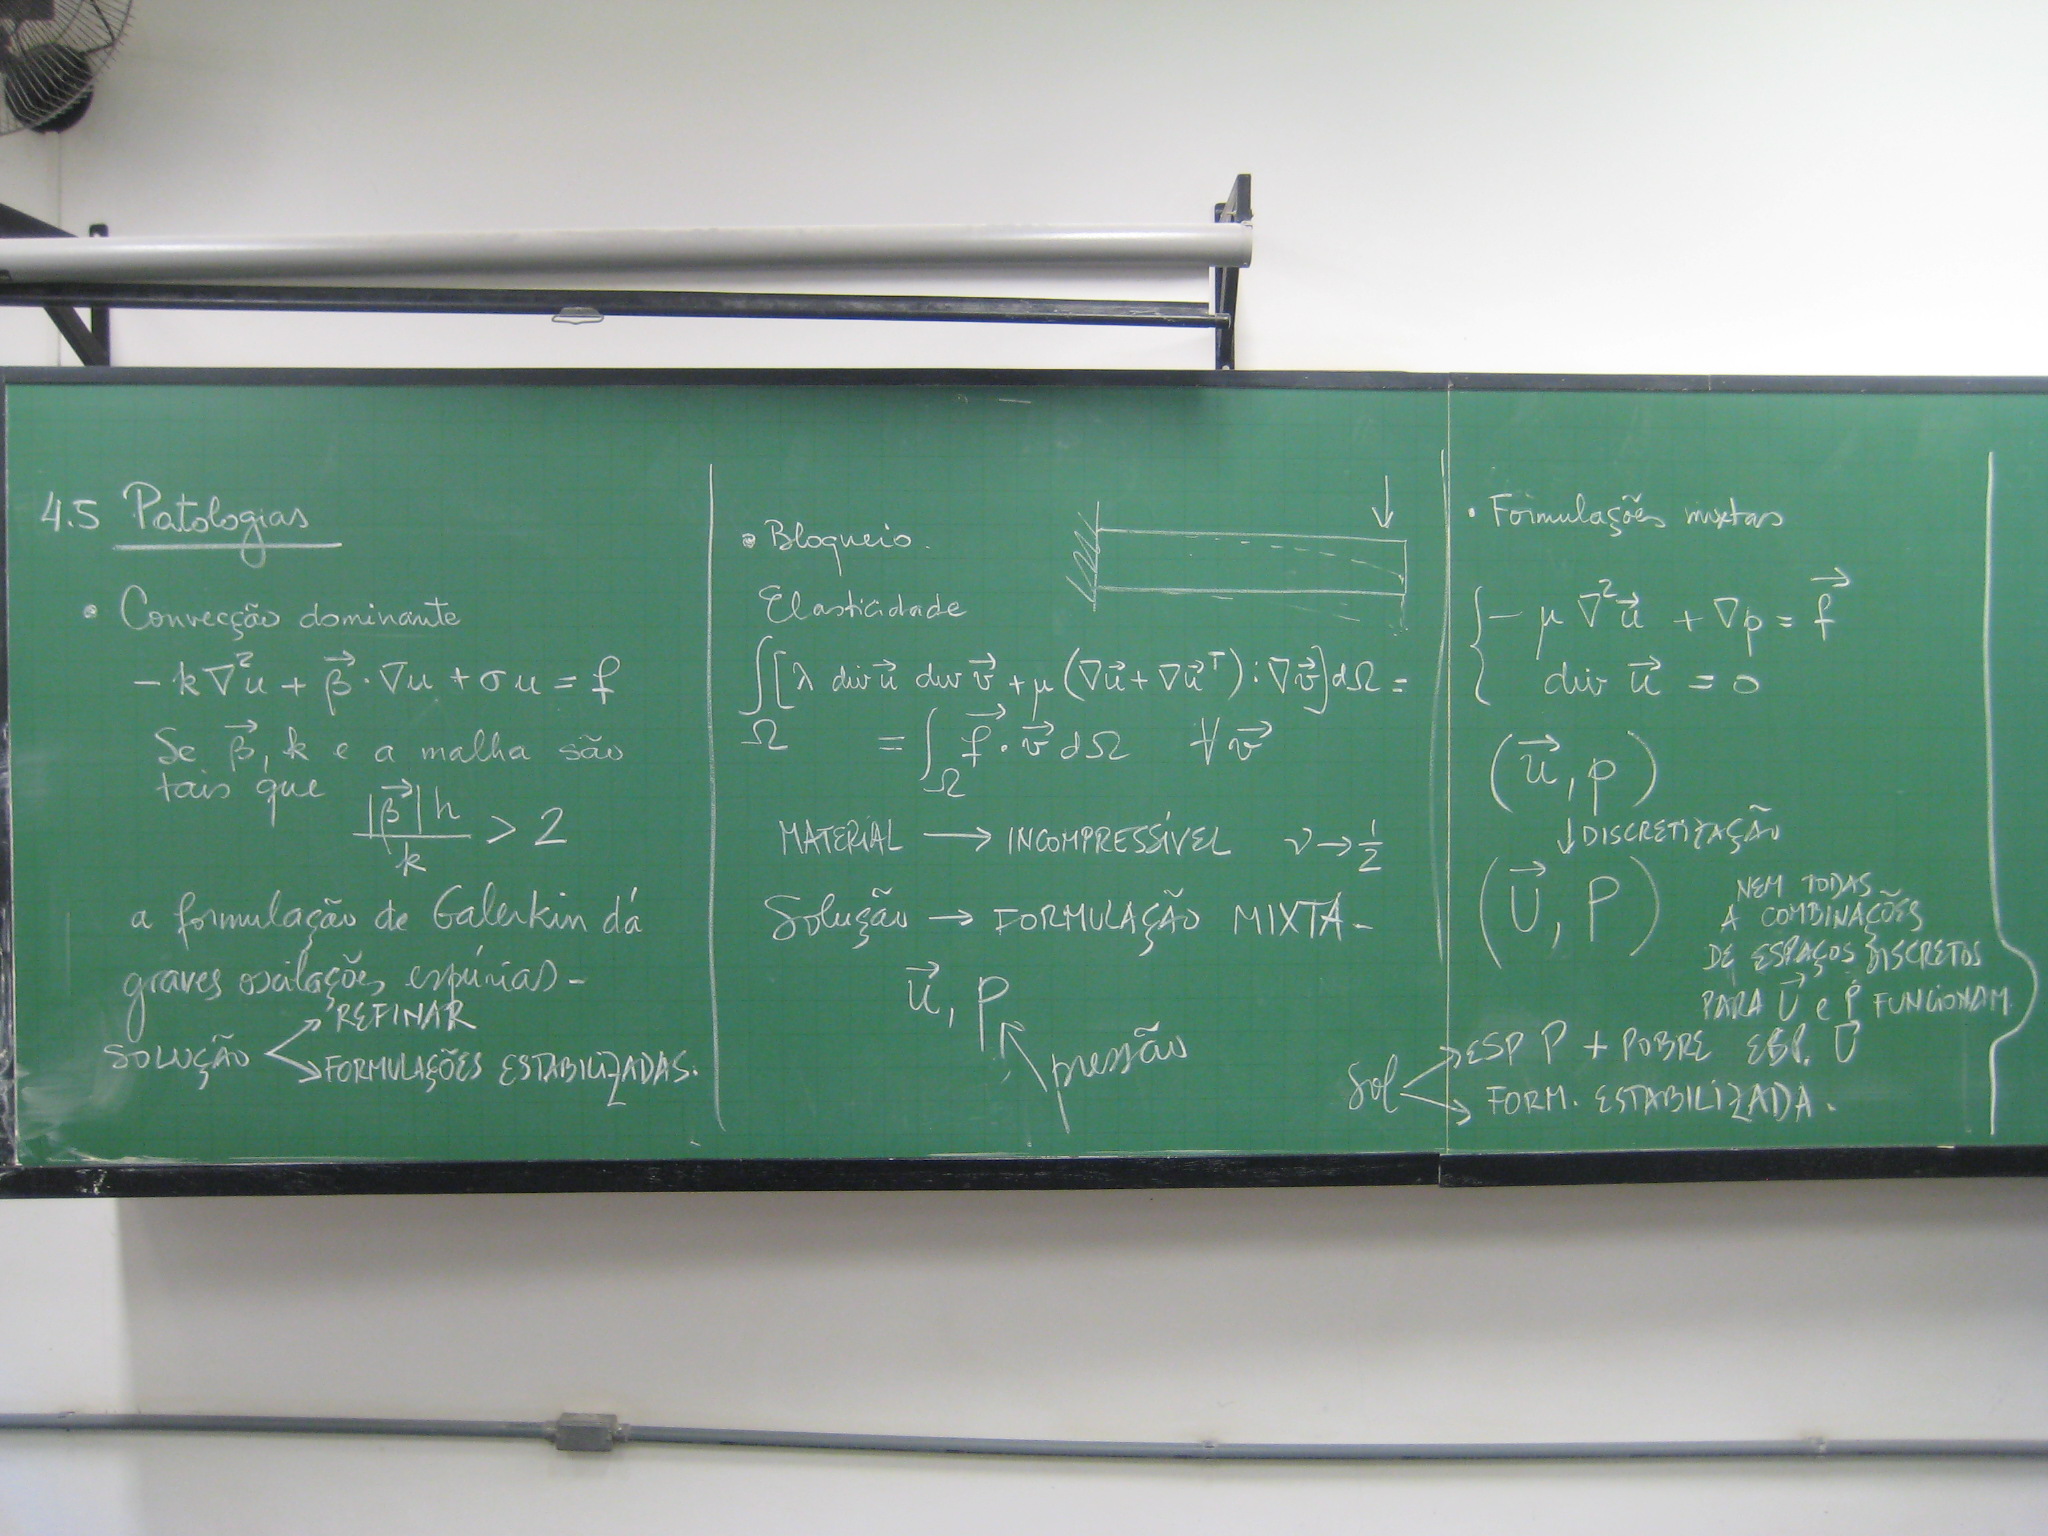 4.5 Patologias
• Convecção dominante
-k∇²u + β⃗·∇u + σu = f
Se β⃗, k e a malha são
tais que
|β⃗|h / k > 2
a formulação de Galerkin dá
graves oscilações espúrias-
SOLUÇÃO → REFINAR
→ FORMULAÇÕES ESTABILIZADAS.
• Bloqueio.
Elasticidade
∫_Ω [λ div u⃗ div v⃗ + μ (∇u⃗ + ∇u⃗ᵀ) : ∇v⃗] dΩ =
= ∫_Ω f⃗ · v⃗ dΩ ∀ v⃗
MATERIAL → INCOMPRESSÍVEL ν → 1/2
Solução → FORMULAÇÃO MIXTA-
u⃗, p
pressão
• Formulações mixtas
{ -μ ∇²u⃗ + ∇p = f⃗
div u⃗ = 0
(u⃗, p)
↓ DISCRETIZAÇÃO
(U⃗, P)
NEM TODAS
A COMBINAÇÕES
DE ESPAÇOS DISCRETOS
PARA U⃗ e P FUNCIONAM.
Sol → ESP P + POBRE ESP. U⃗
→ FORM. ESTABILIZADA.